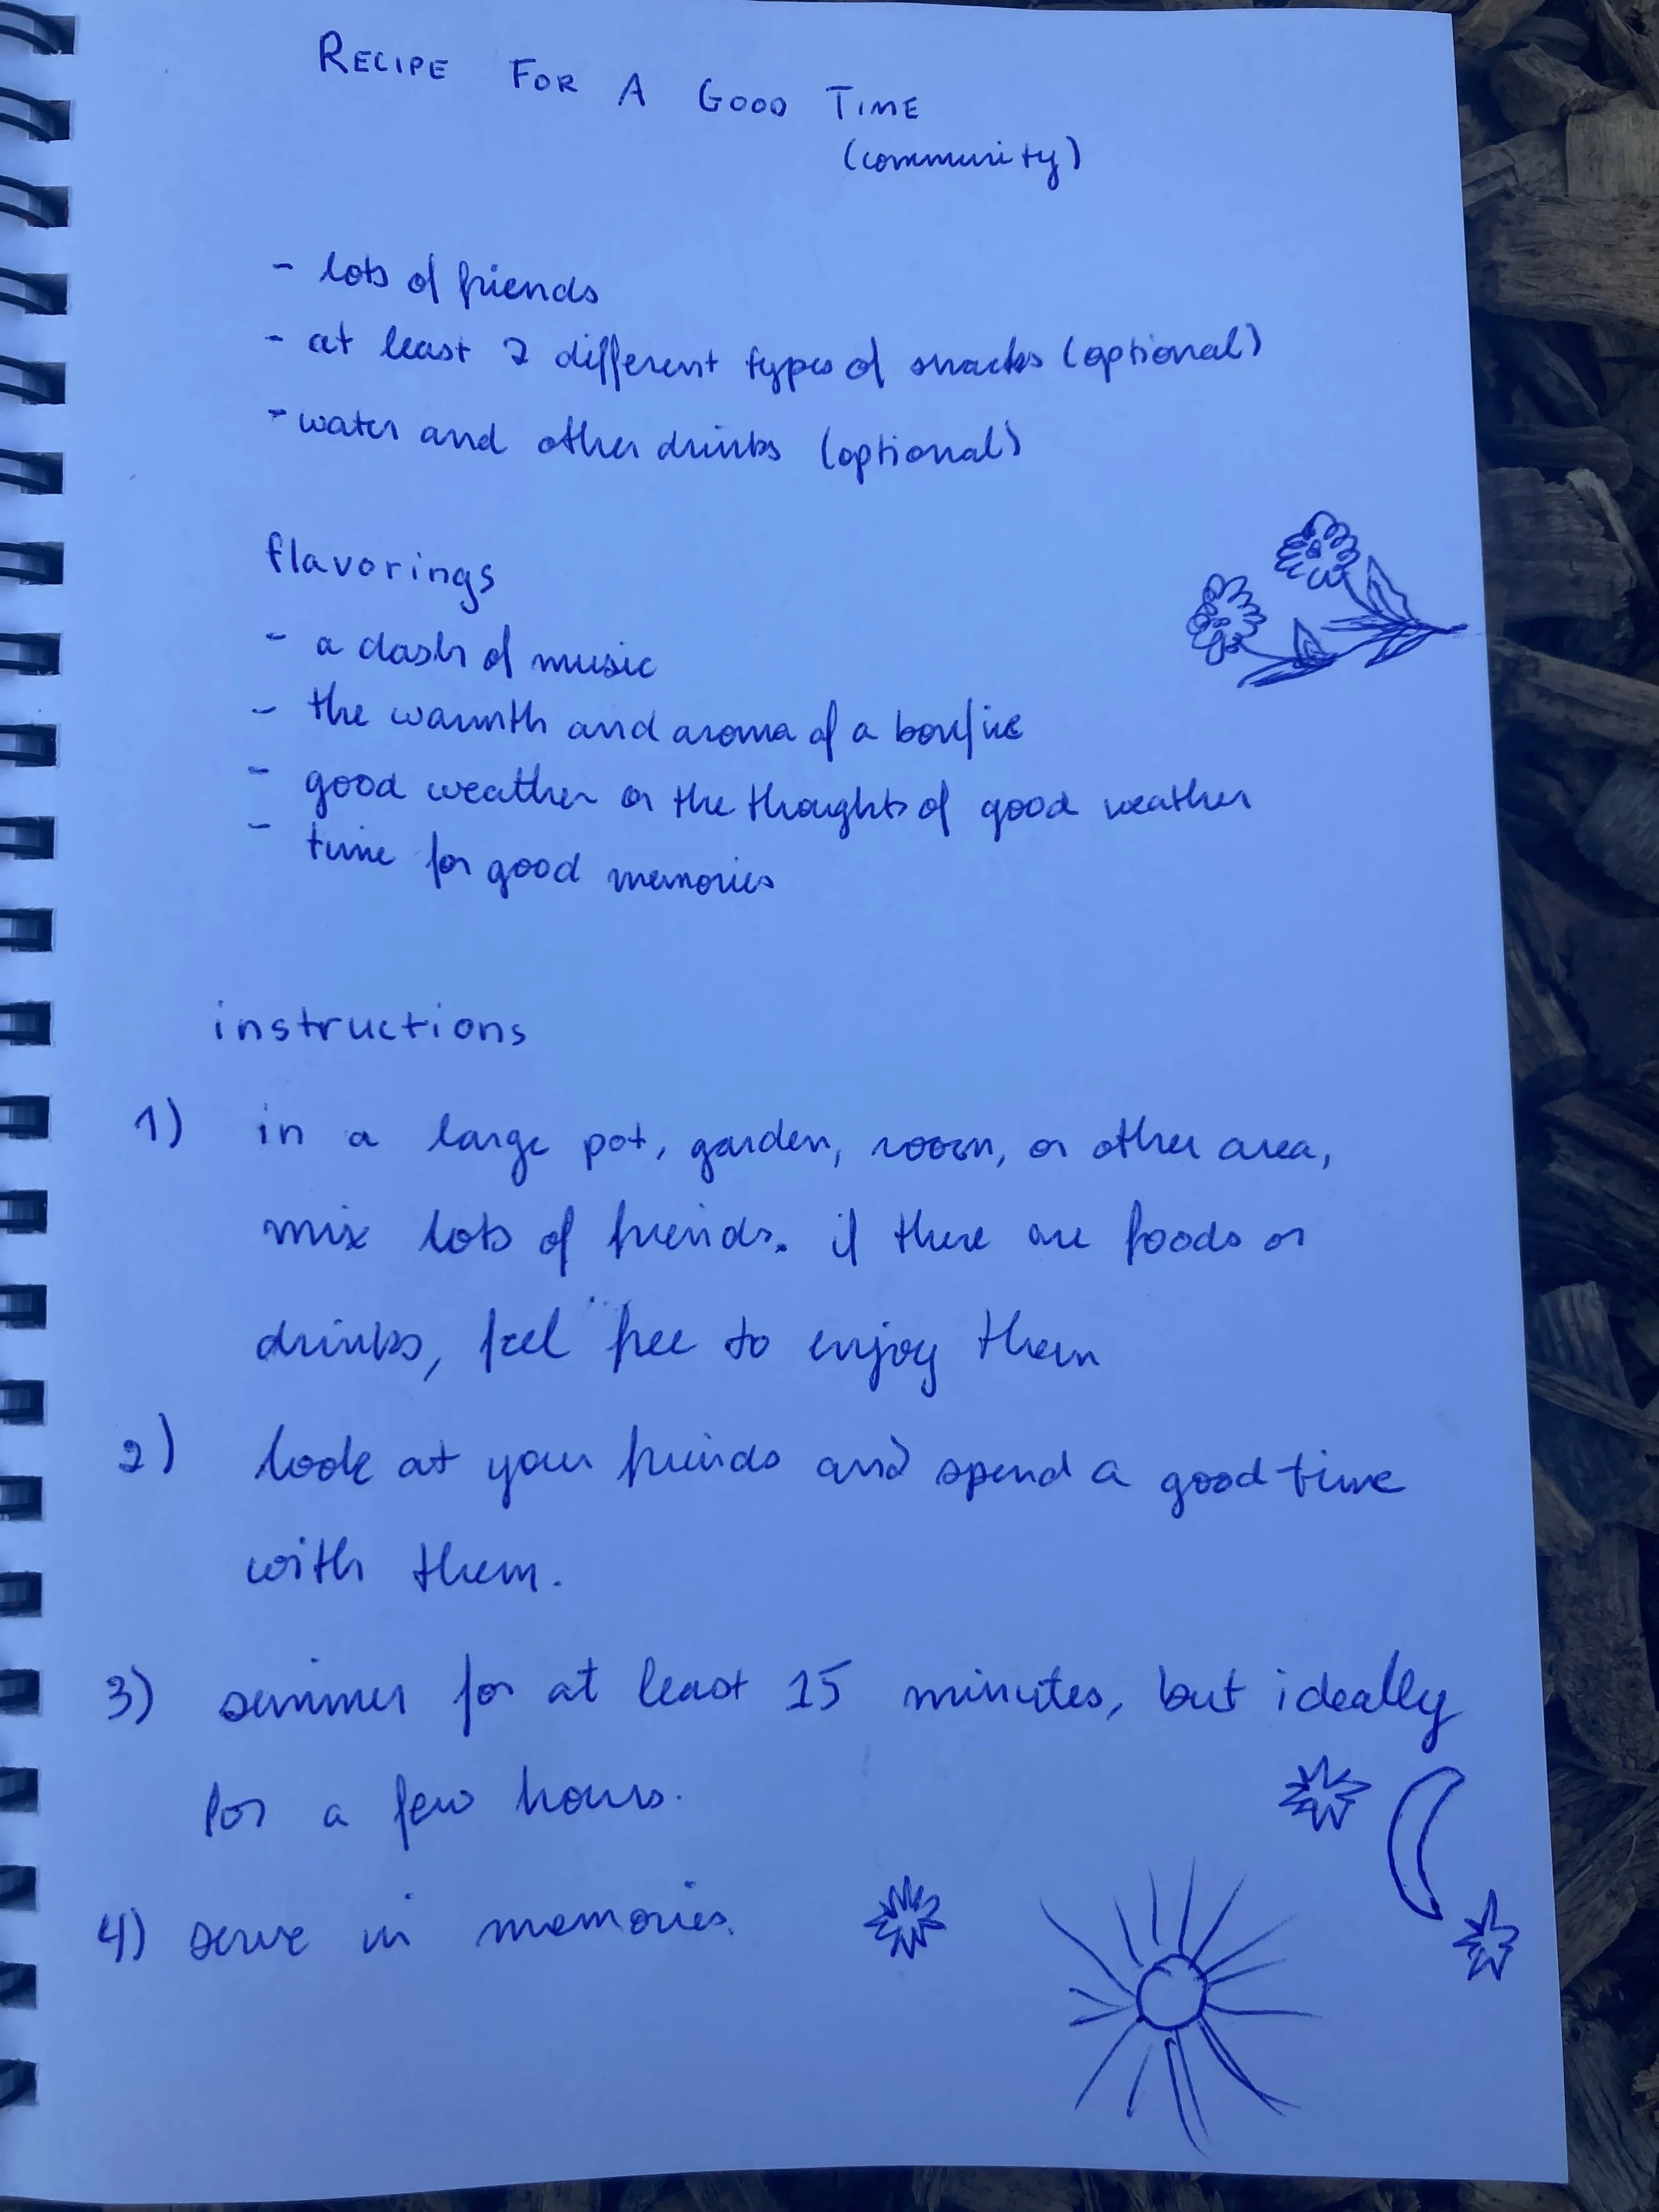 RECIPE FOR A GOOD TIME
(community)
- lots of friends
- at least 2 different types of snacks (optional)
- water and other drinks (optional)
flavorings
- a dash of music
- the warmth and aroma of a bonfire
- good weather or the thoughts of good weather
- time for good memories
instructions
1) in a large pot, garden, room, or other area,
mix lots of friends. if there are foods or
drinks, feel free to enjoy them
2) look at your friends and spend a good time
with them.
3) simmer for at least 15 minutes, but ideally
for a few hours.
4) serve in memories.